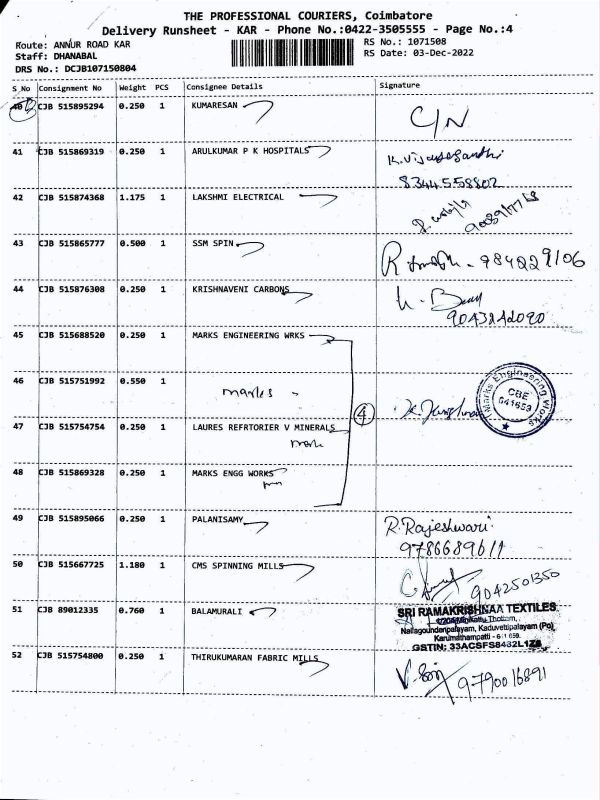 THE PROFESSIONAL COURIERS, Coimbatore
Delivery Runsheet - KAR - Phone No.:0422-3505555 - Page No.:4
Route: ANNUR ROAD KAR
RS No.: 1071508
Staff: DHANABAL
RS Date: 03-Dec-2022
DRS No.: DCJB107150804
S_No Consignment No Weight PCS Consignee Details Signature
40 CJB 515895294 0.250 1 KUMARESAN
C/N
41 CJB 515869319 0.250 1 ARULKUMAR P K HOSPITALS
8344558802
42 CJB 515874368 1.175 1 LAKSHMI ELECTRICAL
43 CJB 515865777 0.500 1 SSM SPIN
44 CJB 515876308 0.250 1 KRISHNAVENI CARBONS
45 CJB 515688520 0.250 1 MARKS ENGINEERING WRKS
46 CJB 515751992 0.550 1
marks
4
Marks Engineering Works
CBE
641659
47 CJB 515754754 0.250 1 LAURES REFRTORIER V MINERALS
48 CJB 515869328 0.250 1 MARKS ENGG WORKS
49 CJB 515895066 0.250 1 PALANISAMY
R. Rajeshwari
9786689611
50 CJB 515667725 1.180 1 CMS SPINNING MILLS
9042501350
51 CJB 89012335 0.760 1 BALAMURALI
SRI RAMAKRISHNAA TEXTILES
Thottam,
Nallagoundenpalayam, Kaduvettipalayam (Po)
Karumathampatti - 641 659.
GSTIN: 33ACSFS8432L1Z8
52 CJB 515754800 0.250 1 THIRUKUMARAN FABRIC MILLS
9790016891